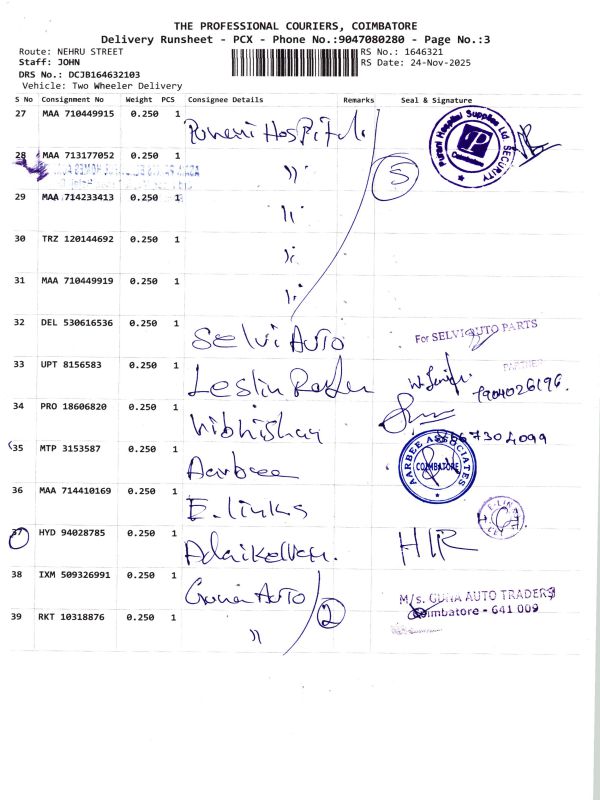 THE PROFESSIONAL COURIERS, COIMBATORE
Delivery Runsheet - PCX - Phone No.:9047080280 - Page No.:3
Route: NEHRU STREET
RS No.: 1646321
Staff: JOHN
RS Date: 24-Nov-2025
DRS No.: DCJB164632103
Vehicle: Two Wheeler Delivery
S No Consignment No Weight PCS Consignee Details Remarks Seal & Signature
27 MAA 710449915 0.250 1 Hospital
Purani Hospital Supplies Ltd
SECURITY
P
Coimbatore
28 MAA 713177052 0.250 1 "
5
29 MAA 714233413 0.250 1 "
30 TRZ 120144692 0.250 1 "
31 MAA 710449919 0.250 1 "
32 DEL 530616536 0.250 1 Selvi Auto
For SELVI AUTO PARTS
PARTNER
33 UPT 8156583 0.250 1 Leslin
7904026196.
34 PRO 18606820 0.250 1 Vibhishan
35 MTP 3153587 0.250 1 Aarbee
AARBEE ASSOCIATES
COIMBATORE
36 MAA 714410169 0.250 1 E. links
37 HYD 94028785 0.250 1
38 IXM 509326991 0.250 1 Guna Auto
2
M/s. GUNA AUTO TRADERS
Coimbatore - 641 009
39 RKT 10318876 0.250 1 "